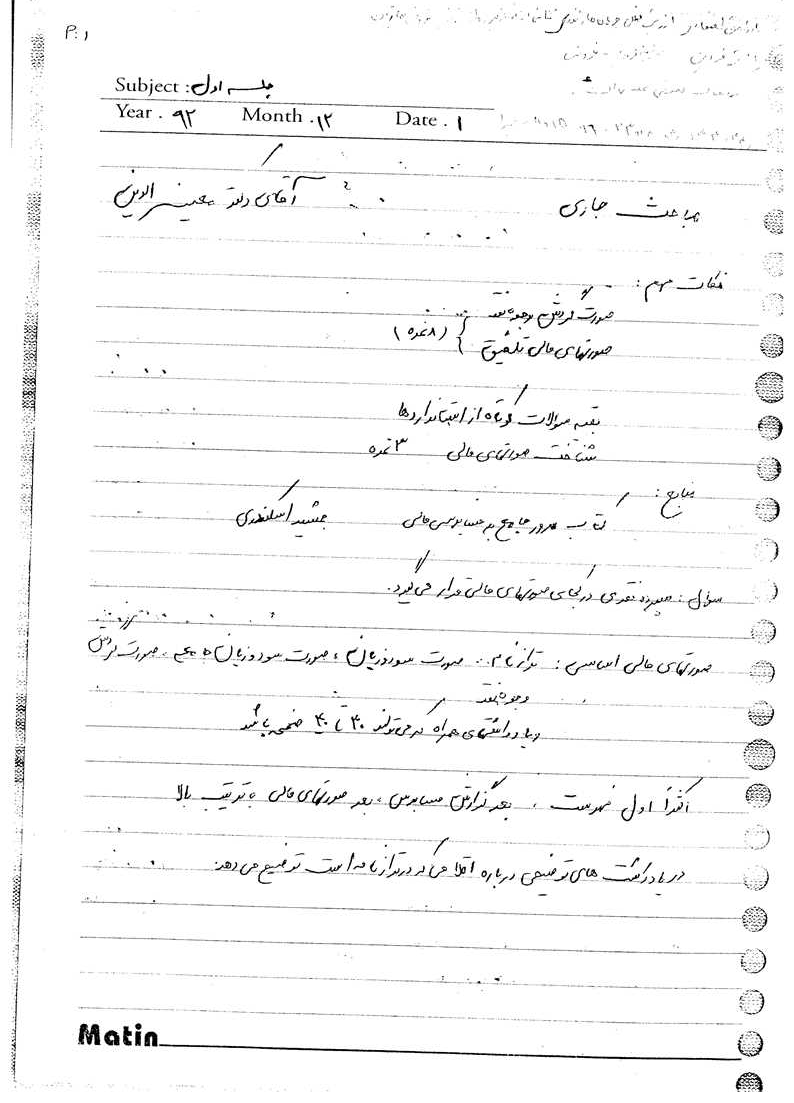 P: 1
Subject : جلسه اول
Year . ۹۲ Month . ۱۲ Date . ۱
مباحث جاری آقای دکتر
نکات مهم :
صورت گردش وجوه نقد
صورتهای مالی تلفیق } (۸ نمره)
بقیه سوالات کوتاه از استانداردها
شناخت صورتهای مالی ۳ نمره
منابع :
کتاب مرور جامع به حسابرسی مالی جمشید اسکندری
سؤال : سپرده نقدی در کجای صورتهای مالی قرار می گیرد.
صورتهای مالی اساسی : ترازنامه . صورت سود و زیان ، صورت سود و زیان جامع . صورت گردش
وجوه نقد
و یادداشتهای همراه که می تواند ۳۰ تا ۴۰ صفحه باشد
اکثراً اول فهرست ، بعد گزارش حسابرس ، بعد صورتهای مالی به ترتیب بالا
در یادداشت های توضیحی درباره اقلامی که در ترازنامه است توضیح می دهد.
Matin